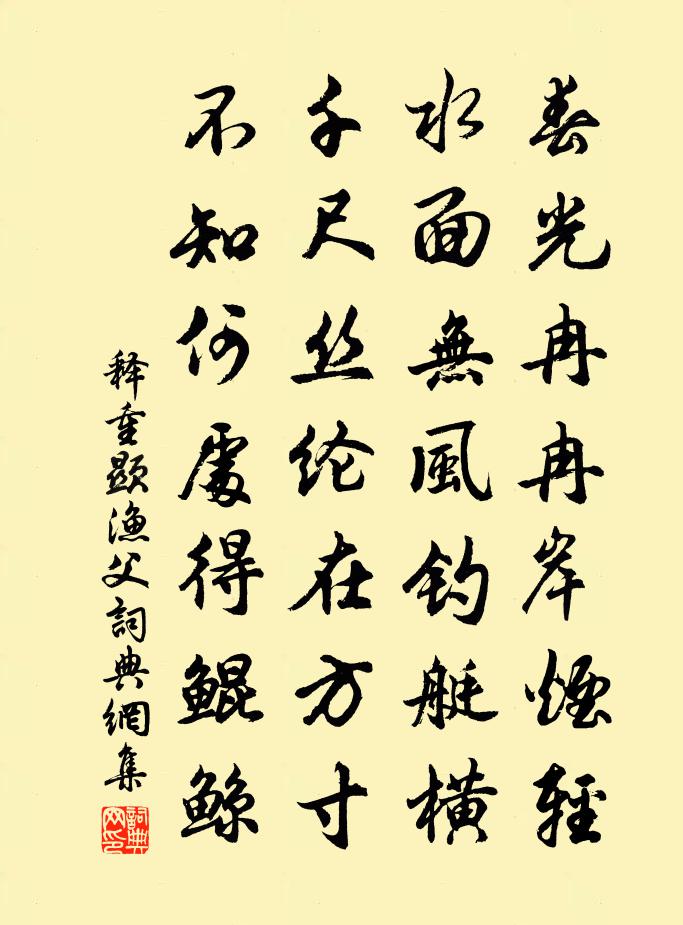 春光冉冉岸煙輕
水面無風釣艇橫
千尺丝纶在方寸
不知何處得鲲鲸
释重顯漁父詞典網集
詞典網印